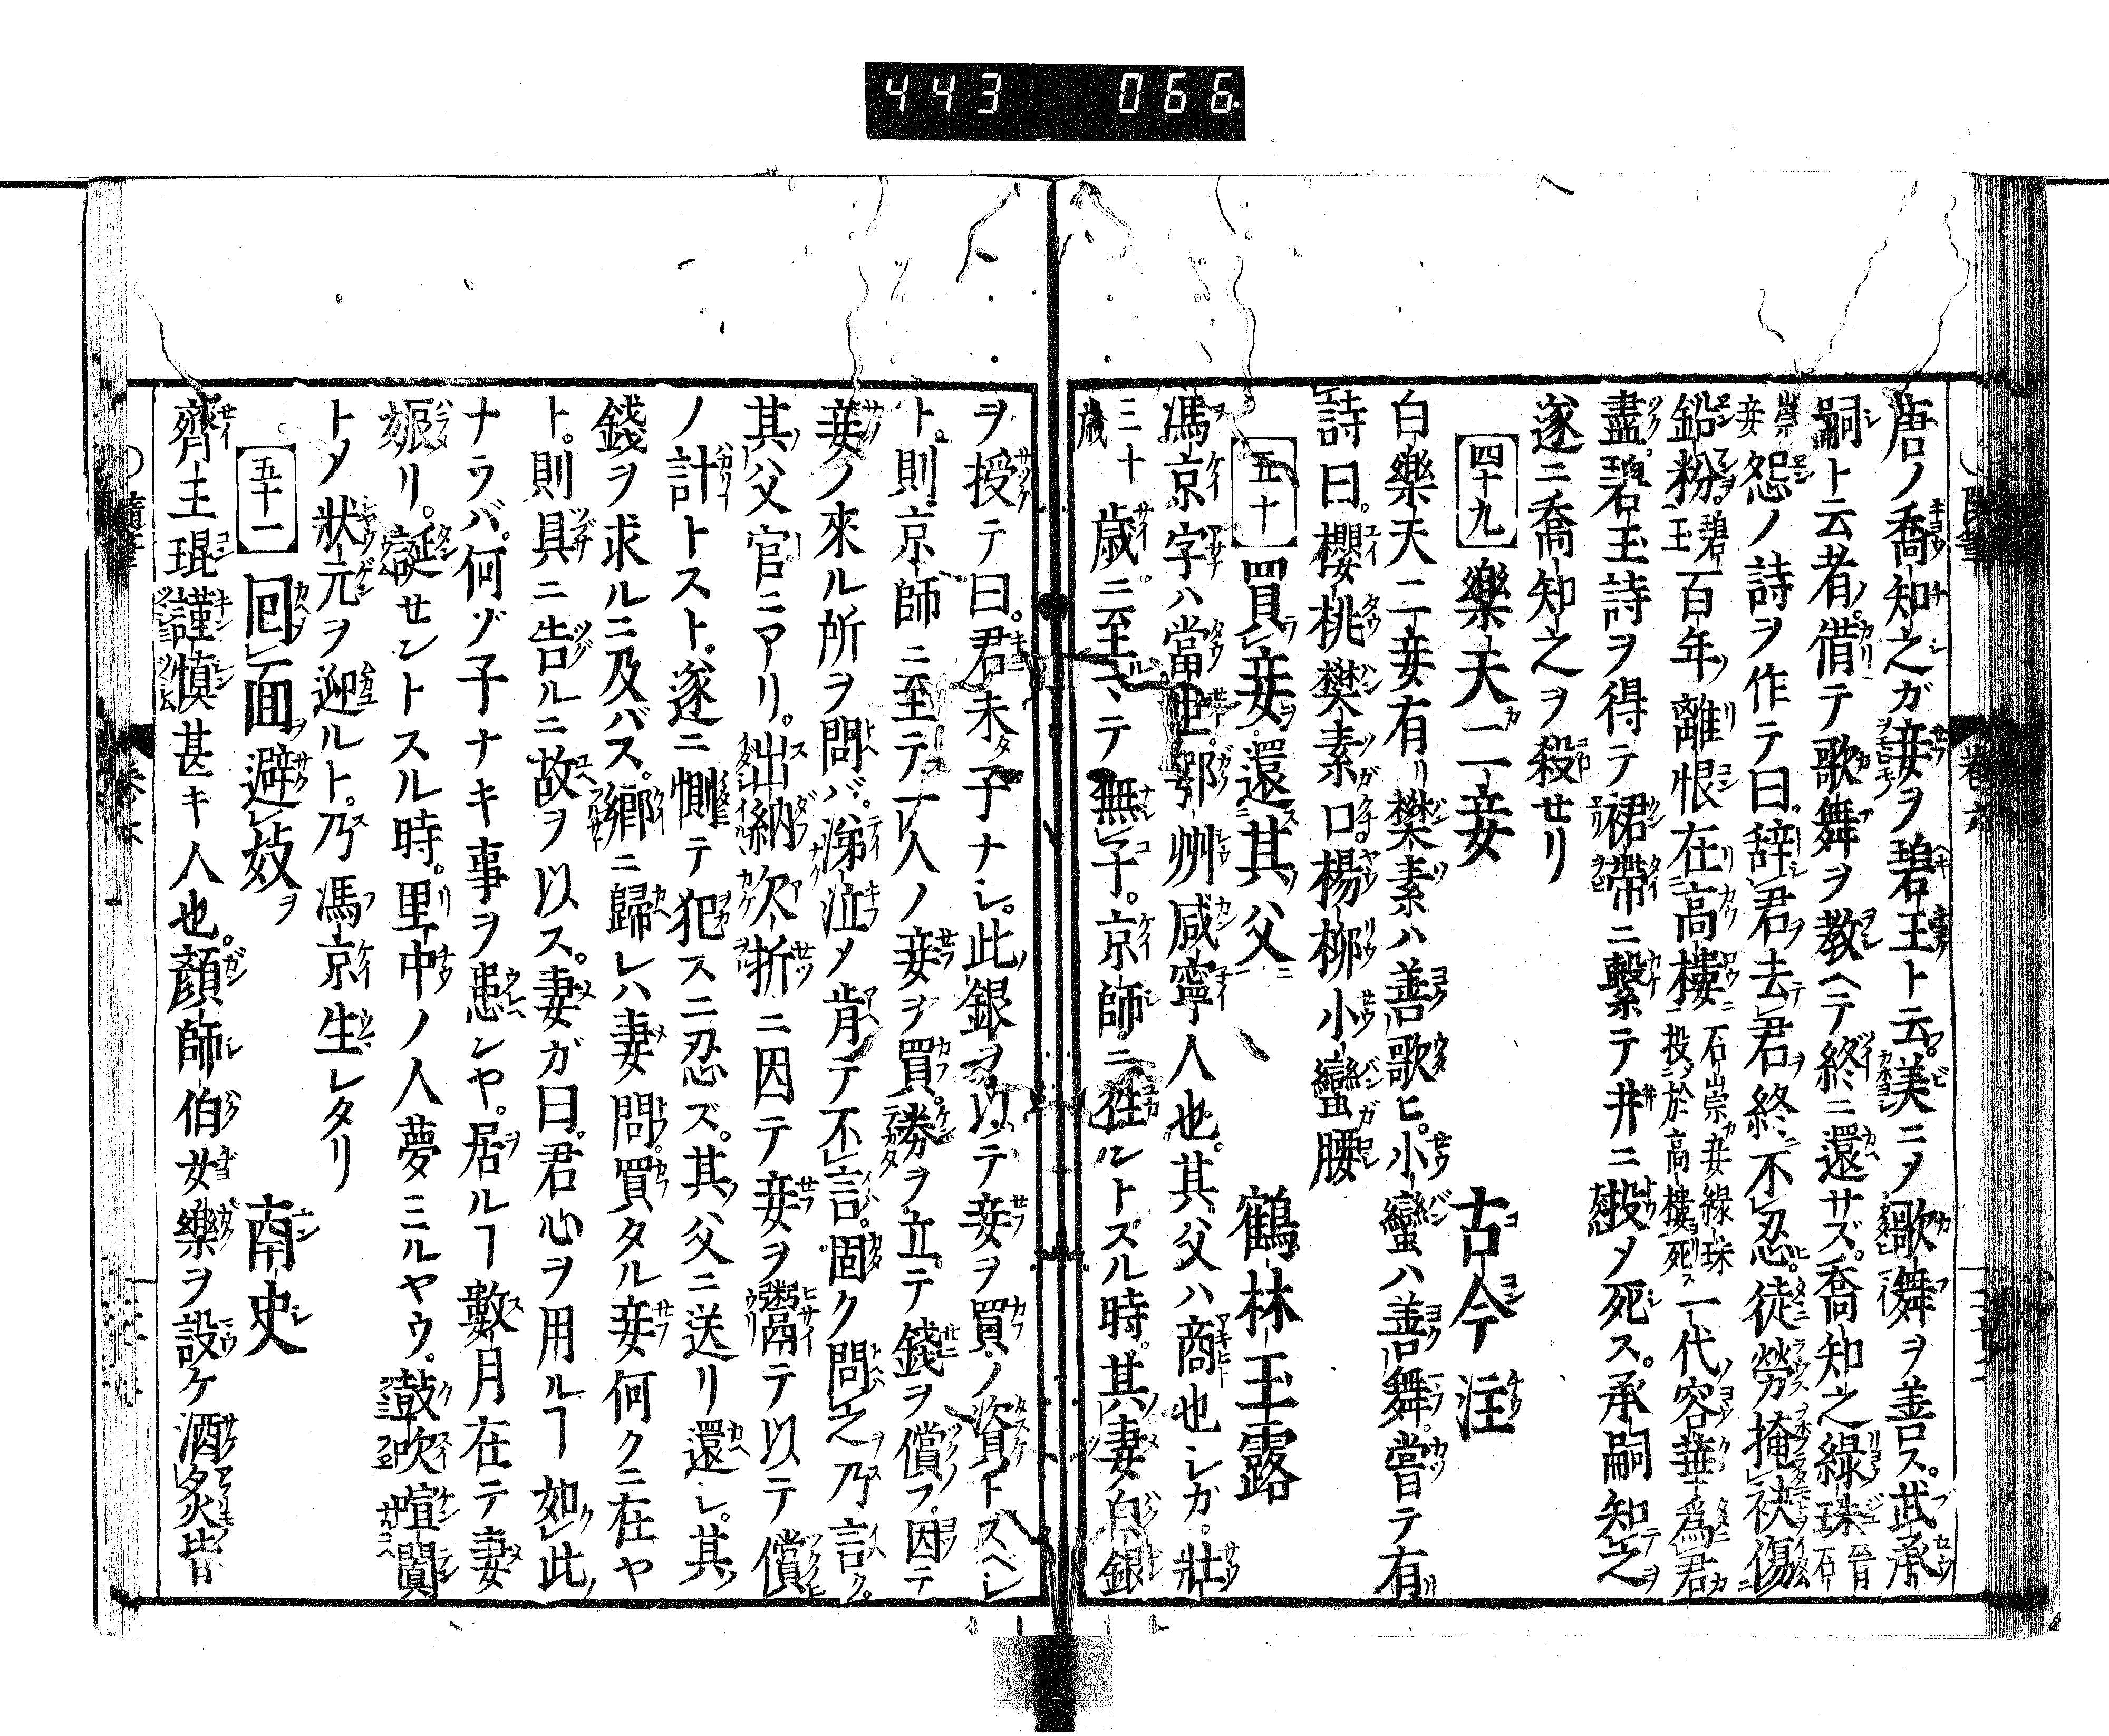 443 066
唐ノ喬知之ガ妾ヲ碧玉ト云美ニメ歌舞ヲ善ス。武承
嗣ト云者。借テ歌舞ヲ教ヘテ終ニ還サズ。喬知之緑珠晉石
崇妾怨ノ詩ヲ作テ曰。辞君去君終不忍徒勞掩袂傷
鉛粉。碧玉百年離恨在高樓石崇妾緑珠投於高樓死一代容華爲君
盡。碧玉詩ヲ得テ裙帶ニ繫テ井ニ投メ死ス。承嗣知之
遂ニ喬知之ヲ殺セリ
四十九 樂天二妾 古今注
白樂天二妾有リ樊素ハ善歌ヒ。小蠻ハ善舞。嘗テ有
詩曰。櫻桃樊素口楊柳小蠻腰
五十 買妾還其父 鶴林玉露
馮京字ハ當世。鄂州咸寧人也。其父ハ商也シガ。壯
三十歳歳ニ至テ無子。京師ニ徃ントスル時。其妻白銀
ヲ授テ曰。君未タ子ナシ。此銀ヲ以テ妾ヲ買ノ資トスヘシ
ト。則京師ニ至テ一人ノ妾ヲ買。券ヲ立テ錢ヲ償フ。因テ
妾ノ來ル所ヲ問バ。涕泣メ肯テ不言。固ク問之乃言ク。
其父官ニアリ。出納欠折ニ因テ妾ヲ鬻テ以テ償
ノ計トスト。遂ニ惻テ犯スニ忍ズ。其父ニ送リ還シ。其
錢ヲ求ルニ及バス。鄕ニ歸レハ妻問買タル妾何クニ在ヤ
ト。則具ニ告ルニ故ヲ以ス。妻ガ曰。君心ヲ用ルヿ如此
ナラバ。何ゾ子ナキ事ヲ患ンヤ。居ルヿ數月在テ妻
娠リ。誕セントスル時。里中ノ人夢ミルヤウ。鼓吹喧闐
トメ狀元ヲ迎ルト。乃馮京生レタリ
五十一 囘面避妓ヲ 南史
齊王琨謹愼甚キ人也。顏師伯女樂ヲ設ケ酒炙皆